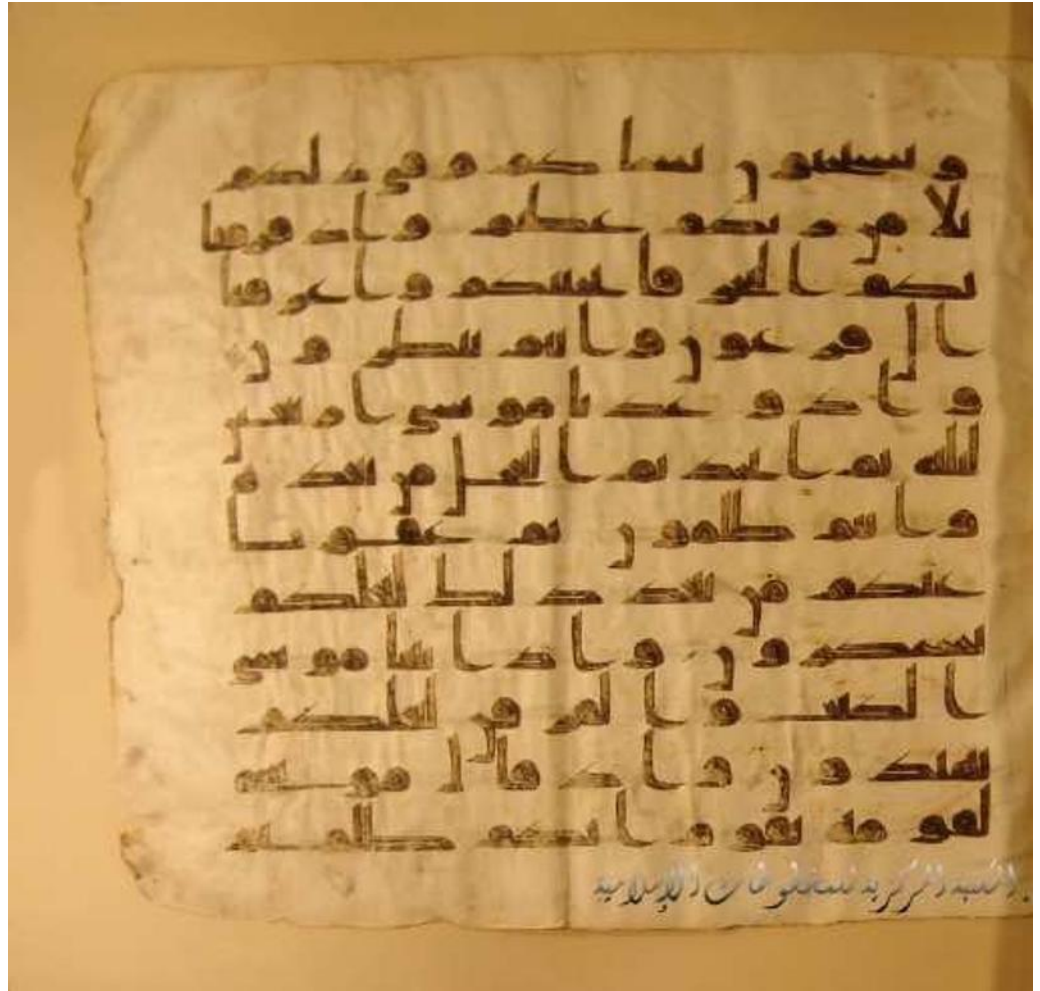 ويستحيون نساكم وفي ذلكم
بلا من ربكم عظيم واذ فرقنا
بكم البحر فانجينكم واغرقنا
ال فرعون وانتم تنظرون
واذ وعدنا موسى اربعين
ليلة ثم اتخذتم العجل من بعده
وانتم ظلمون ثم عفونا
عنكم من بعد ذلك لعلكم
تشكرون واذ اتينا موسى
الكتب والفرقن لعلكم
تهتدون واذ قال موسى
لقومه يقوم انكم ظلمتم
المكتبة المركزية للمخطوطات الإسلامية